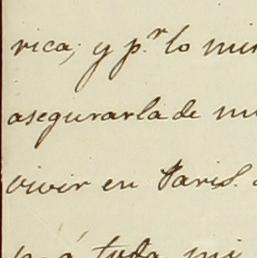 rica; y p.r lo
asegurarla de
vivir en Paris.
á toda mi